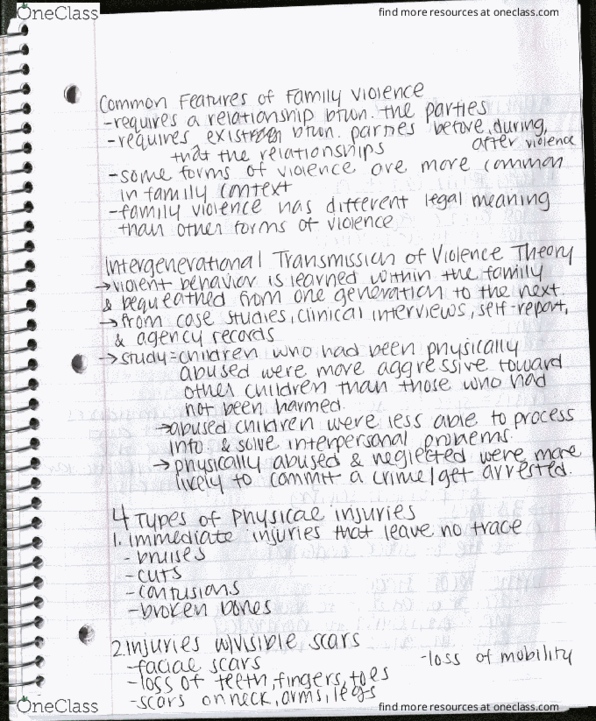 OneClass
find more resources at oneclass.com
Common Features of Family Violence
-requires a relationship btwn. the parties
-requires btwn. parties before, during, after violence
that the relationships
-some forms of violence are more common
in family context
-family violence has different legal meaning
than other forms of violence
Intergenerational Transmission of Violence Theory
→violent behavior is learned within the family
& bequeathed from one generation to the next.
→from case studies, clinical interviews, self-report,
& agency records
→study=children who had been physically
abused were more aggressive toward
other children than those who had
not been harmed.
→abused children were less able to process
info & solve interpersonal problems.
→physically abused & neglected were more
likely to commit a crime/get arrested.
4 Types of Physical injuries
1. immediate injuries that leave no trace
-bruises
-cuts
-contusions
-broken bones
2. injuries w/visible scars
-facial scars
-loss of mobility
-loss of teeth, fingers, toes
-scars on neck, arms, legs
OneClass
find more resources at oneclass.com